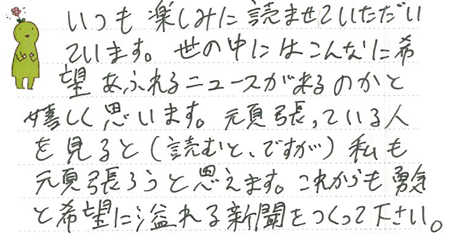 いつも楽しみに読ませていただい
ています。世の中にはこんなに希
望あふれるニュースがあるのかと
嬉しく思います。頑張っている人
を見ると(読むと、ですが)私も
頑張ろうと思えます。これからも勇気
と希望に溢れる新聞をつくって下さい。